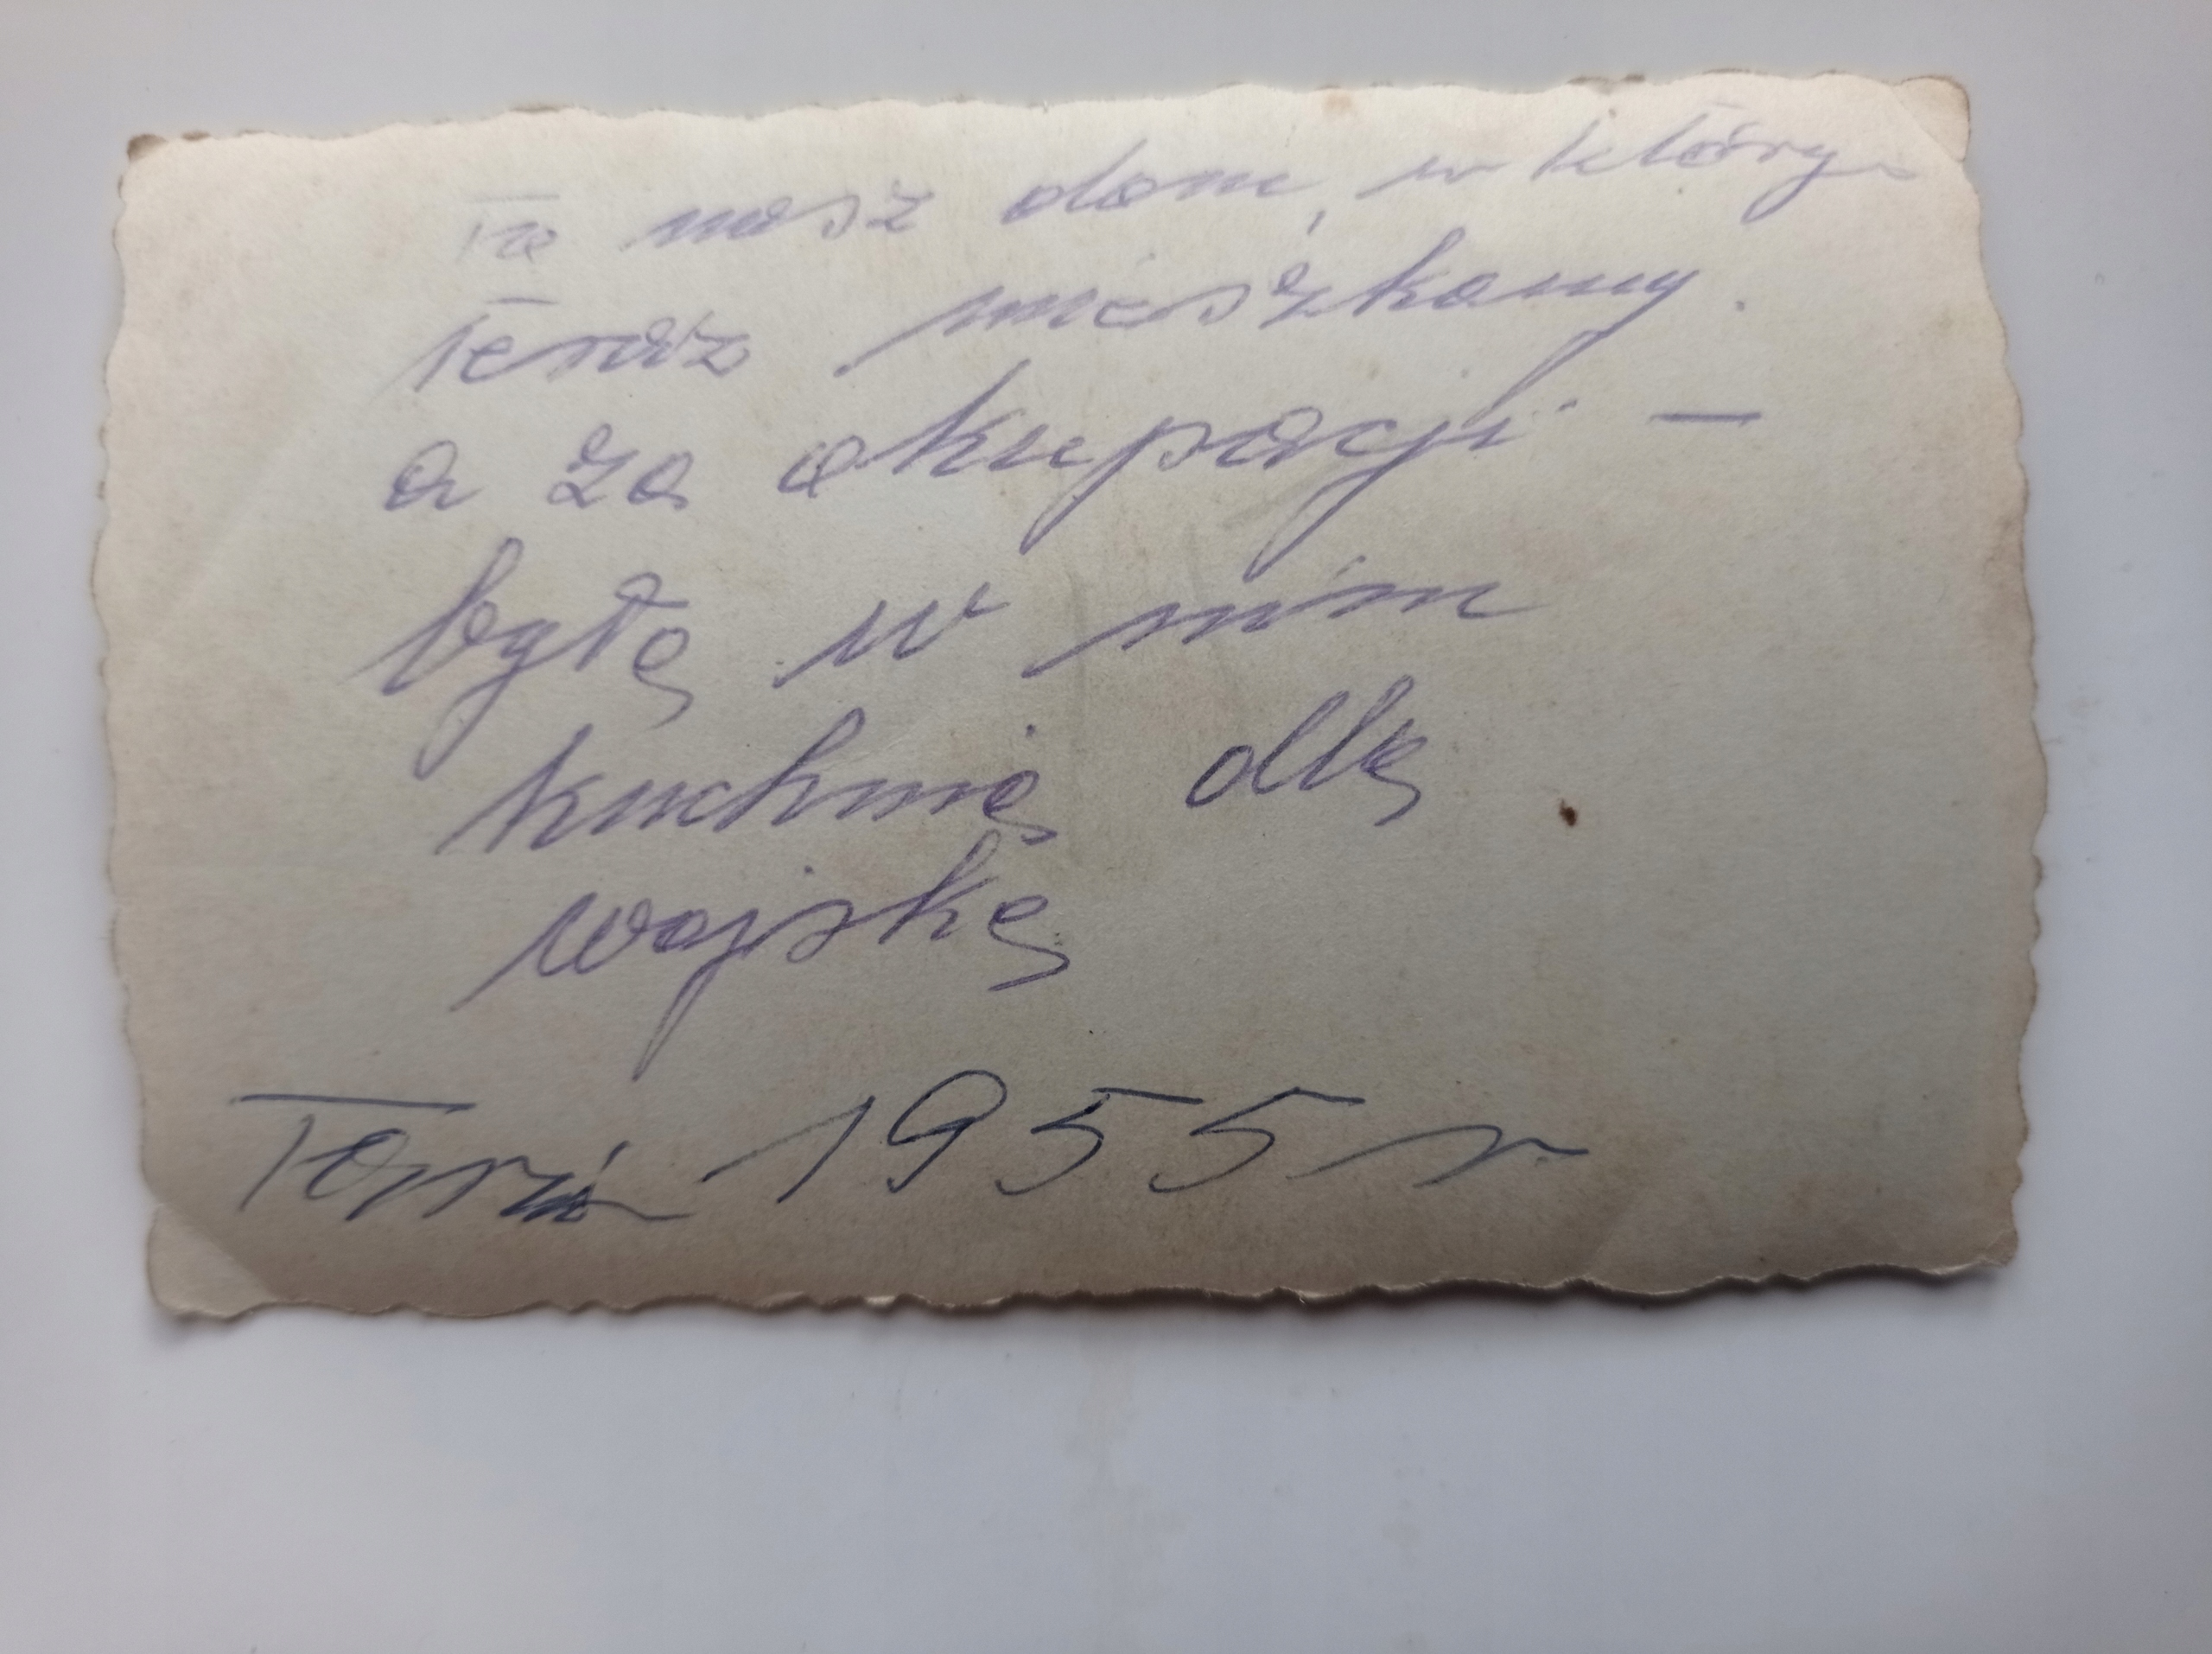 To nasz dom, w którym
teraz mieszkamy.
a za okupacji —
była w nim
kuchnia dla
wojska
1955 r.